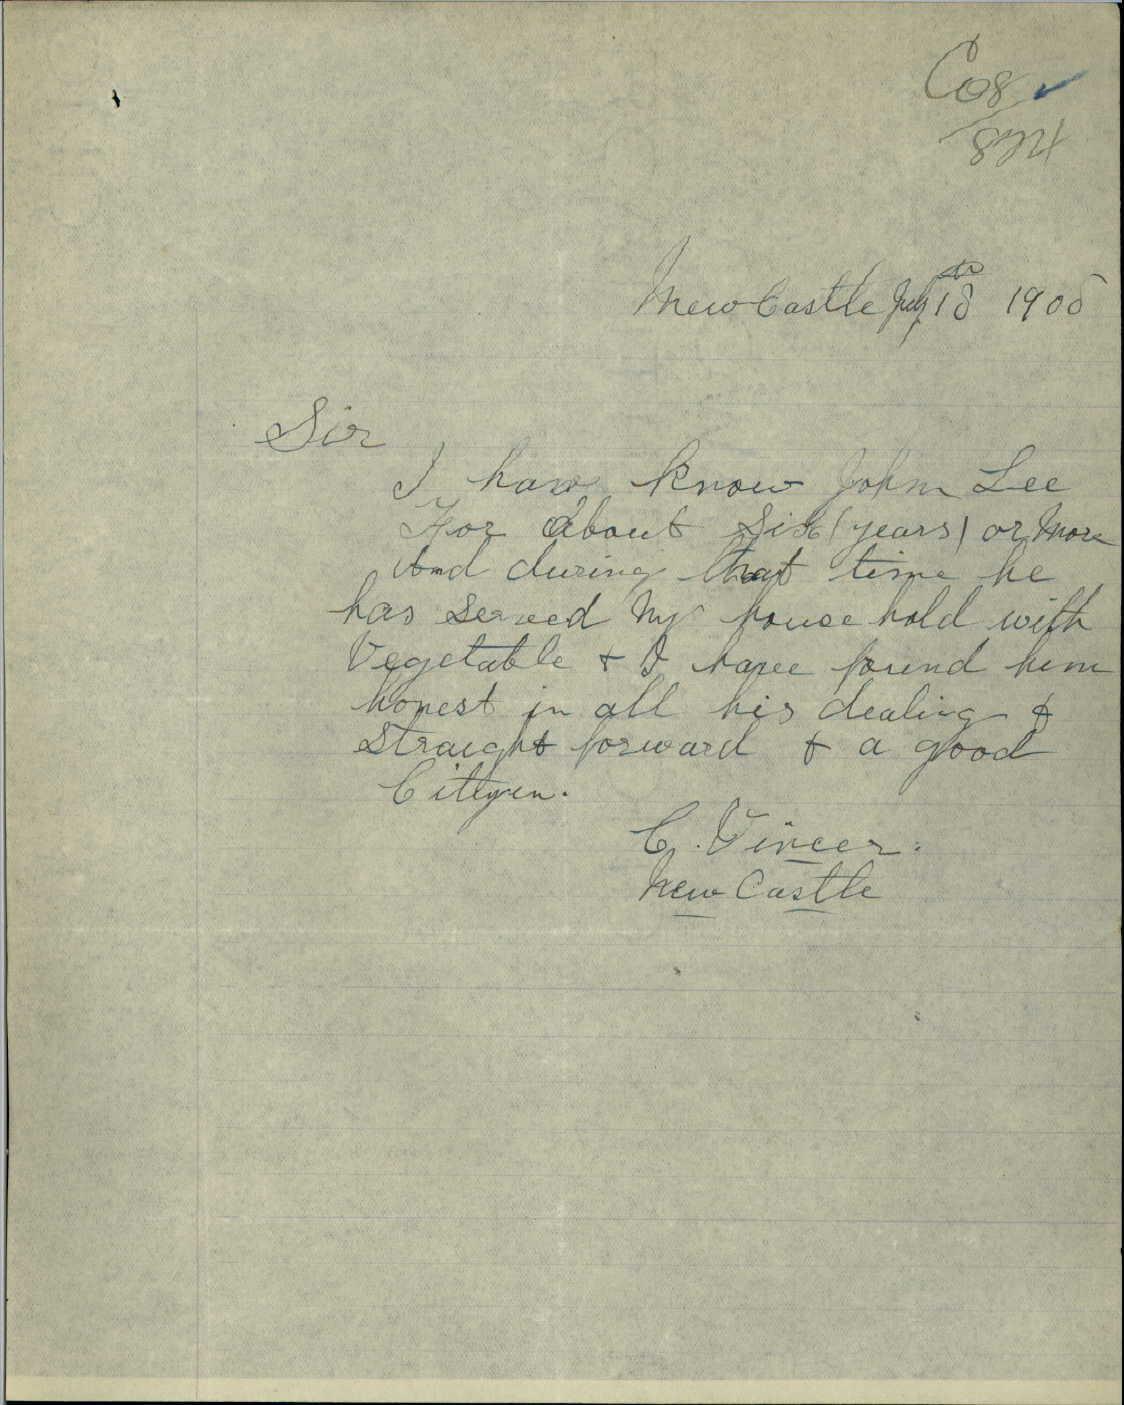 C08
824
New Castle July 18th 1908
Sir
I have know John Lee
For about Six (years) or More
And during that time he
has served My house hold with
Vegetable & I have found him
honest in all his dealing &
Straight forward & a good
Cityen.
C. Vincer.
New Castle